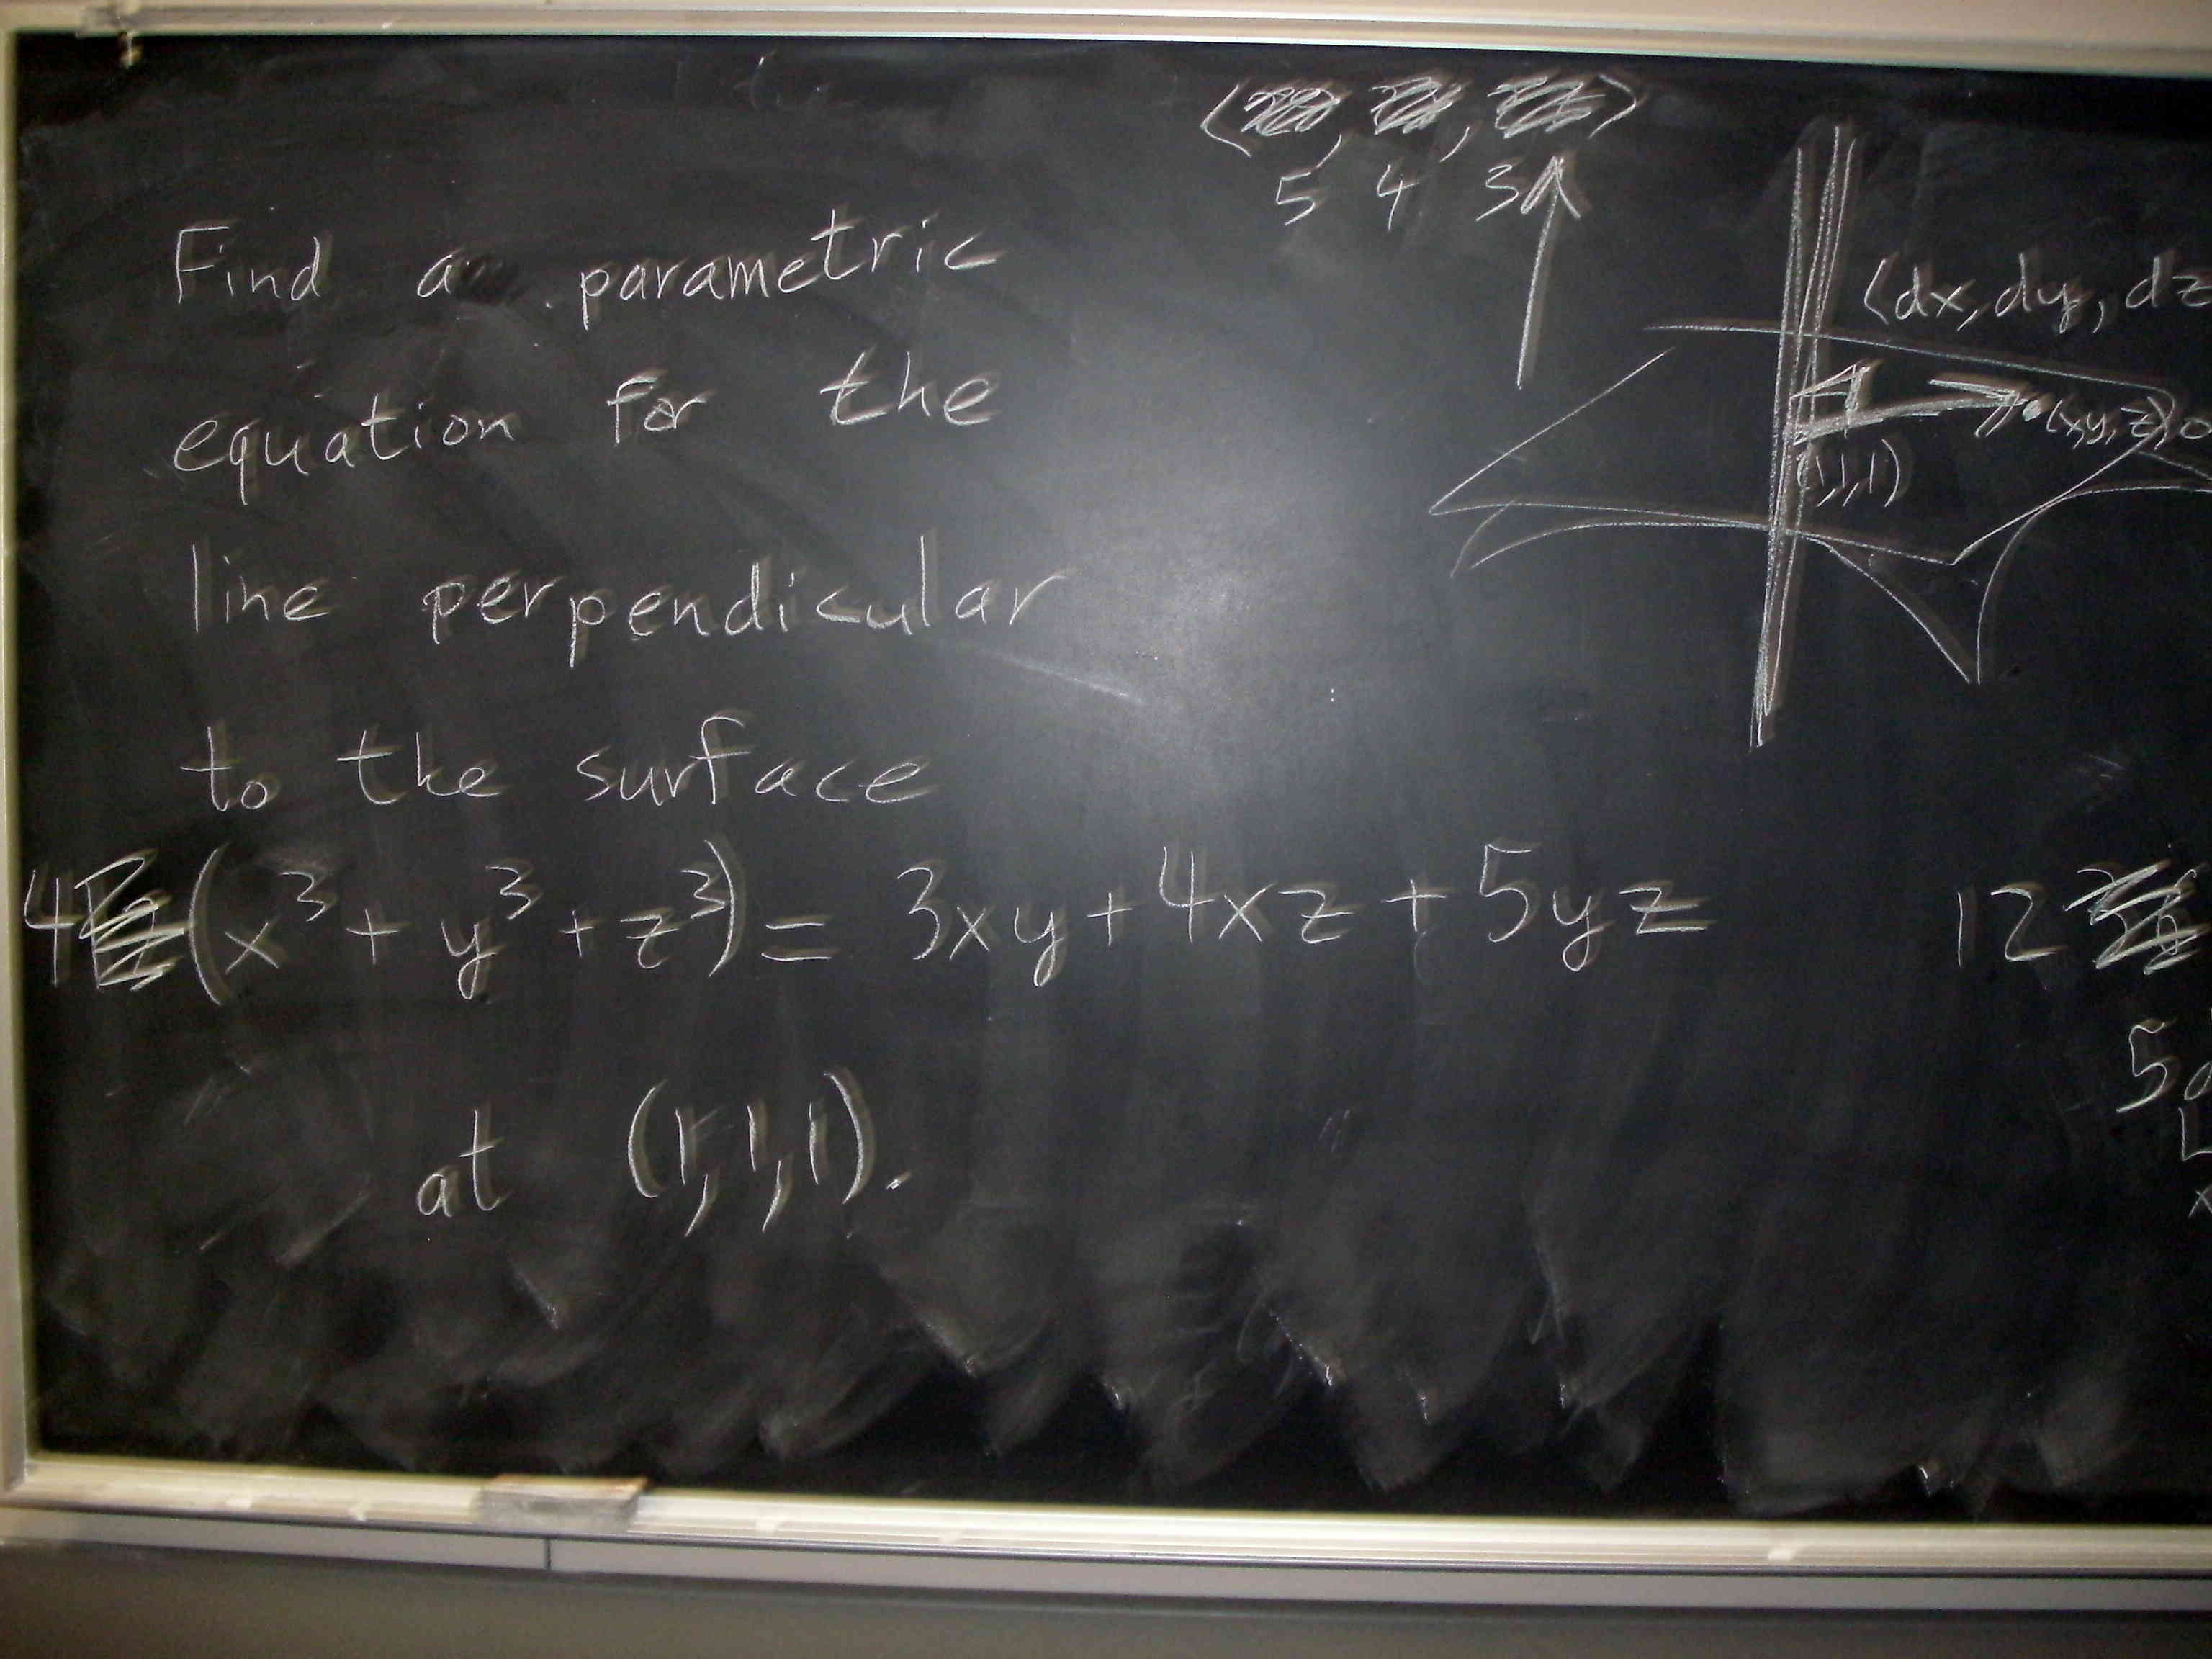 Find a parametric
equation for the
line perpendicular
to the surface
4(x³ + y³ + z³) = 3xy + 4xz + 5yz
at (1,1,1).
( , , )
5 4 3
(dx, dy, dz
(x,y,z)
(1,1,1)
12
5
x